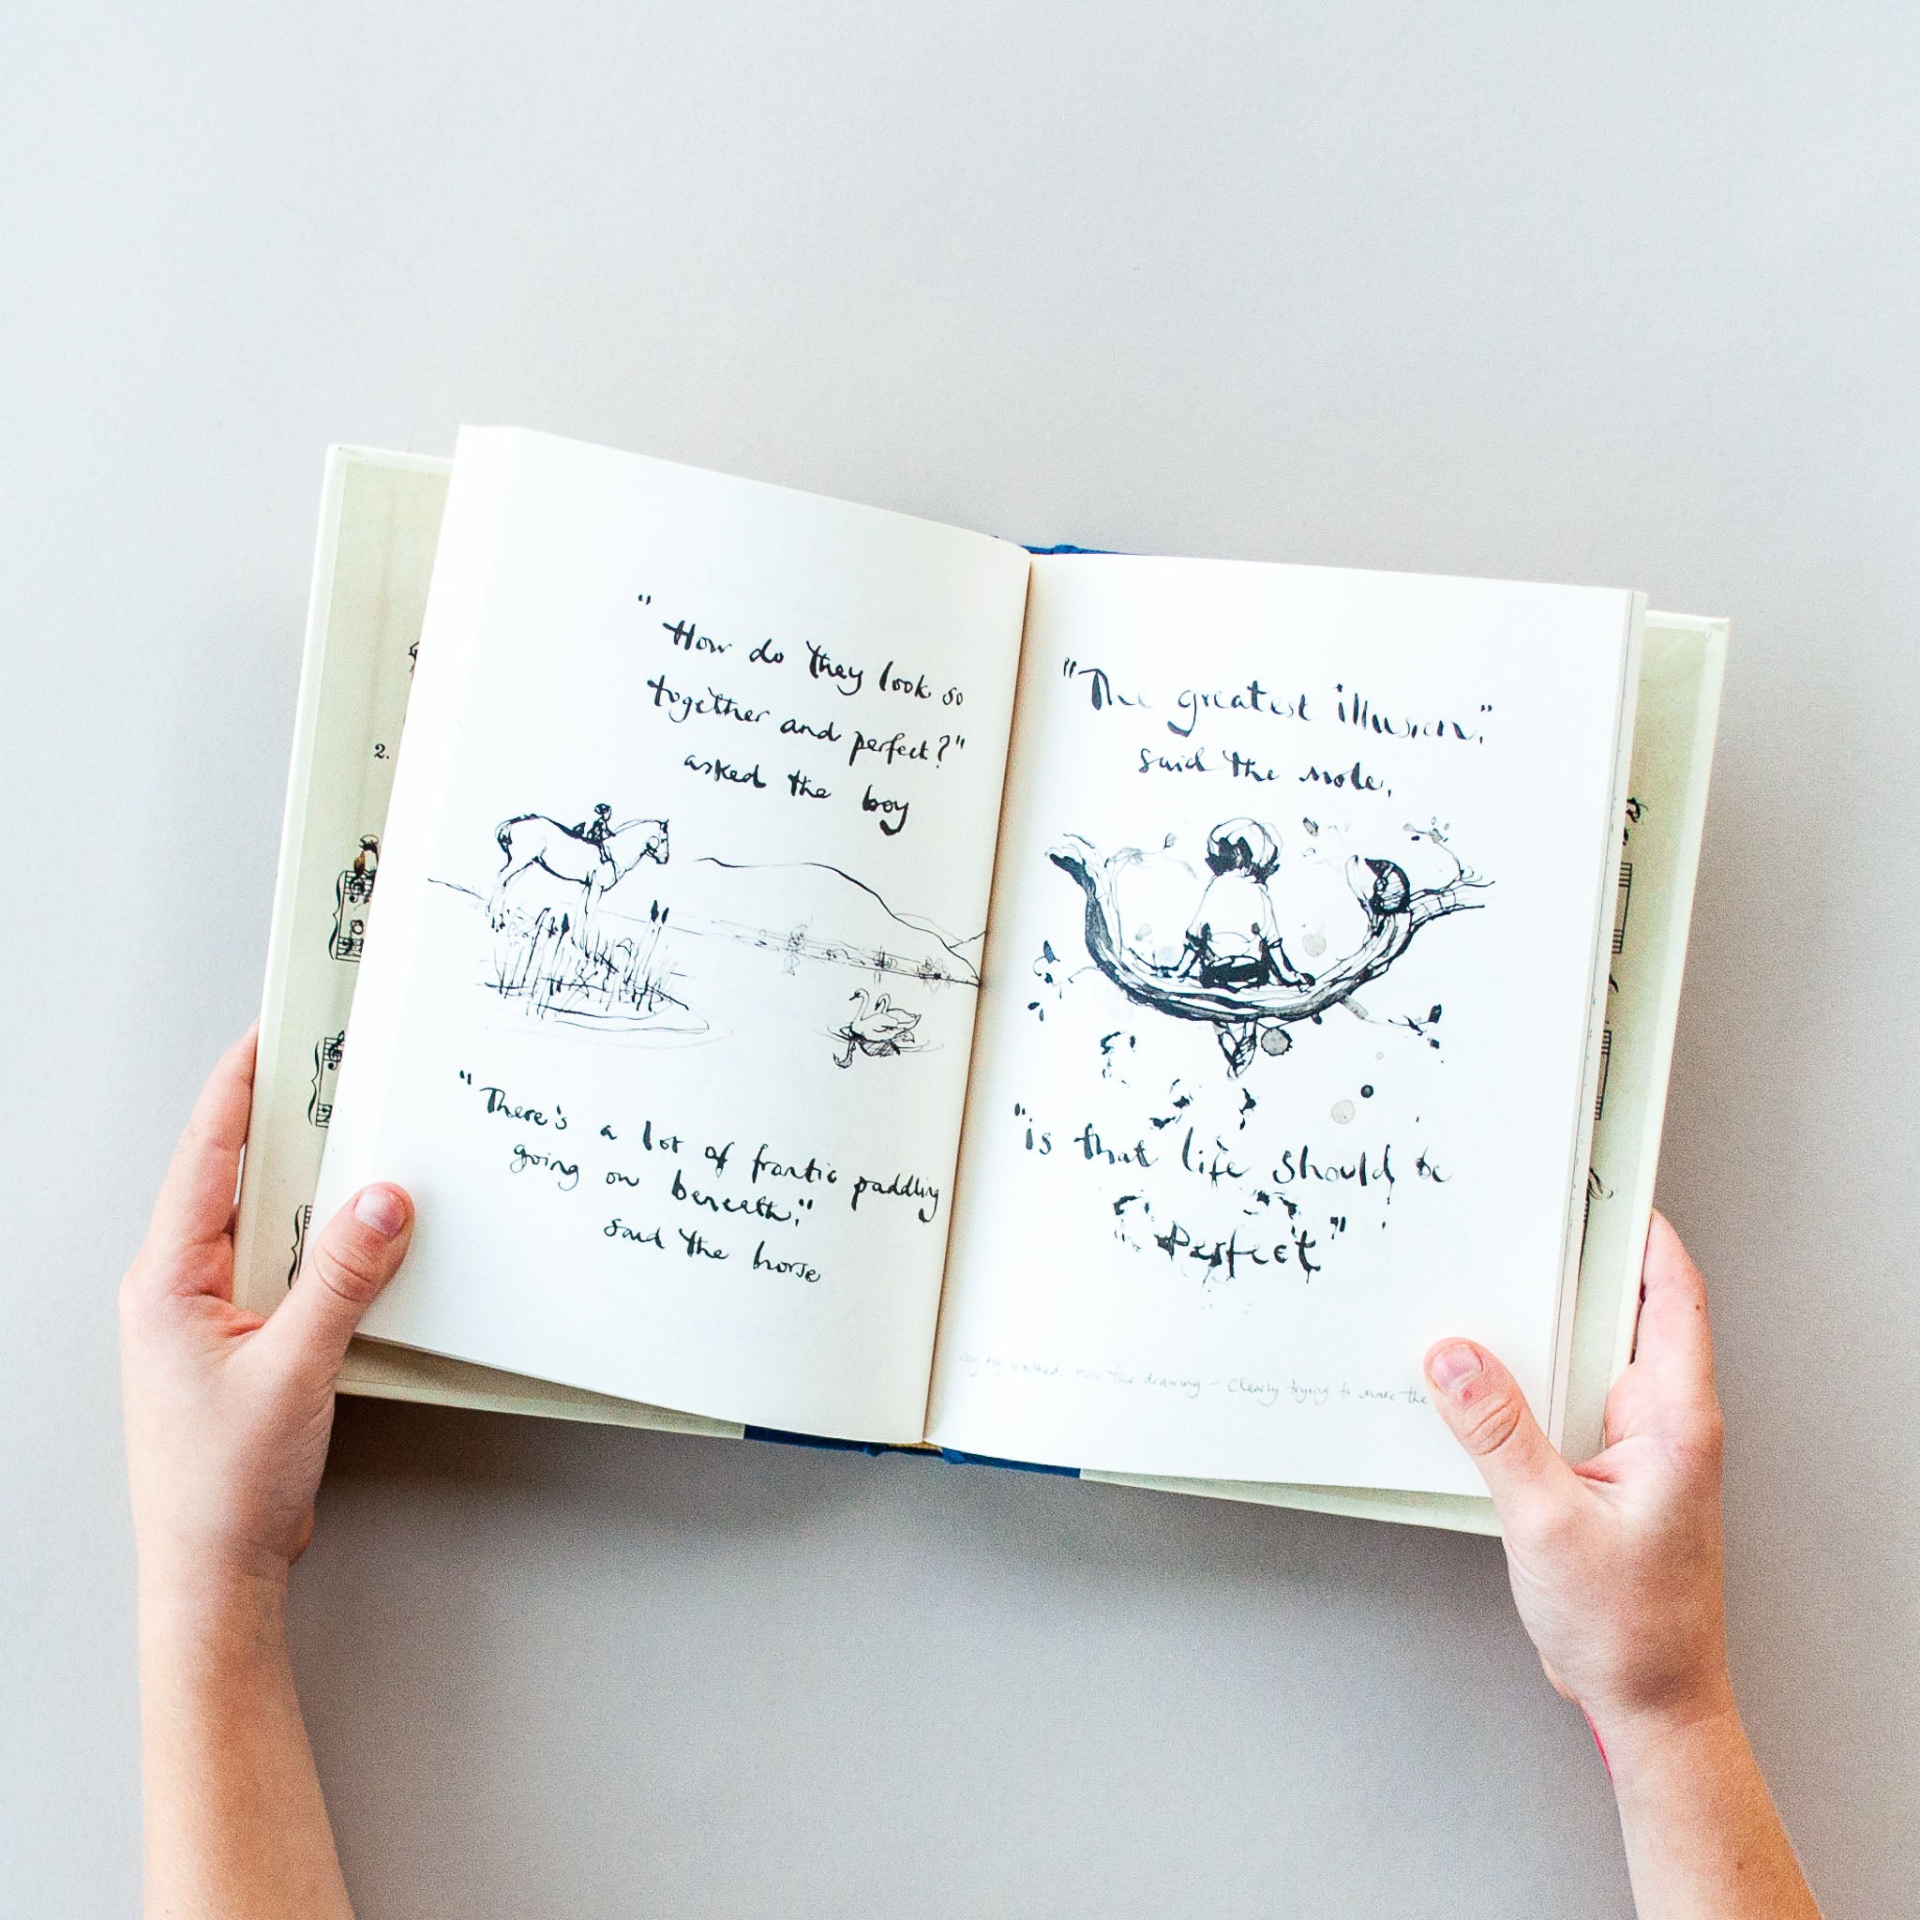 "How do they look so
together and perfect?"
asked the boy
"There's a lot of frantic paddling
going on beneath,"
said the horse
2.
"The greatest illusion,"
said the mole,
"is that life should be
"Perfect"
walked over the drawing - clearly trying to make the